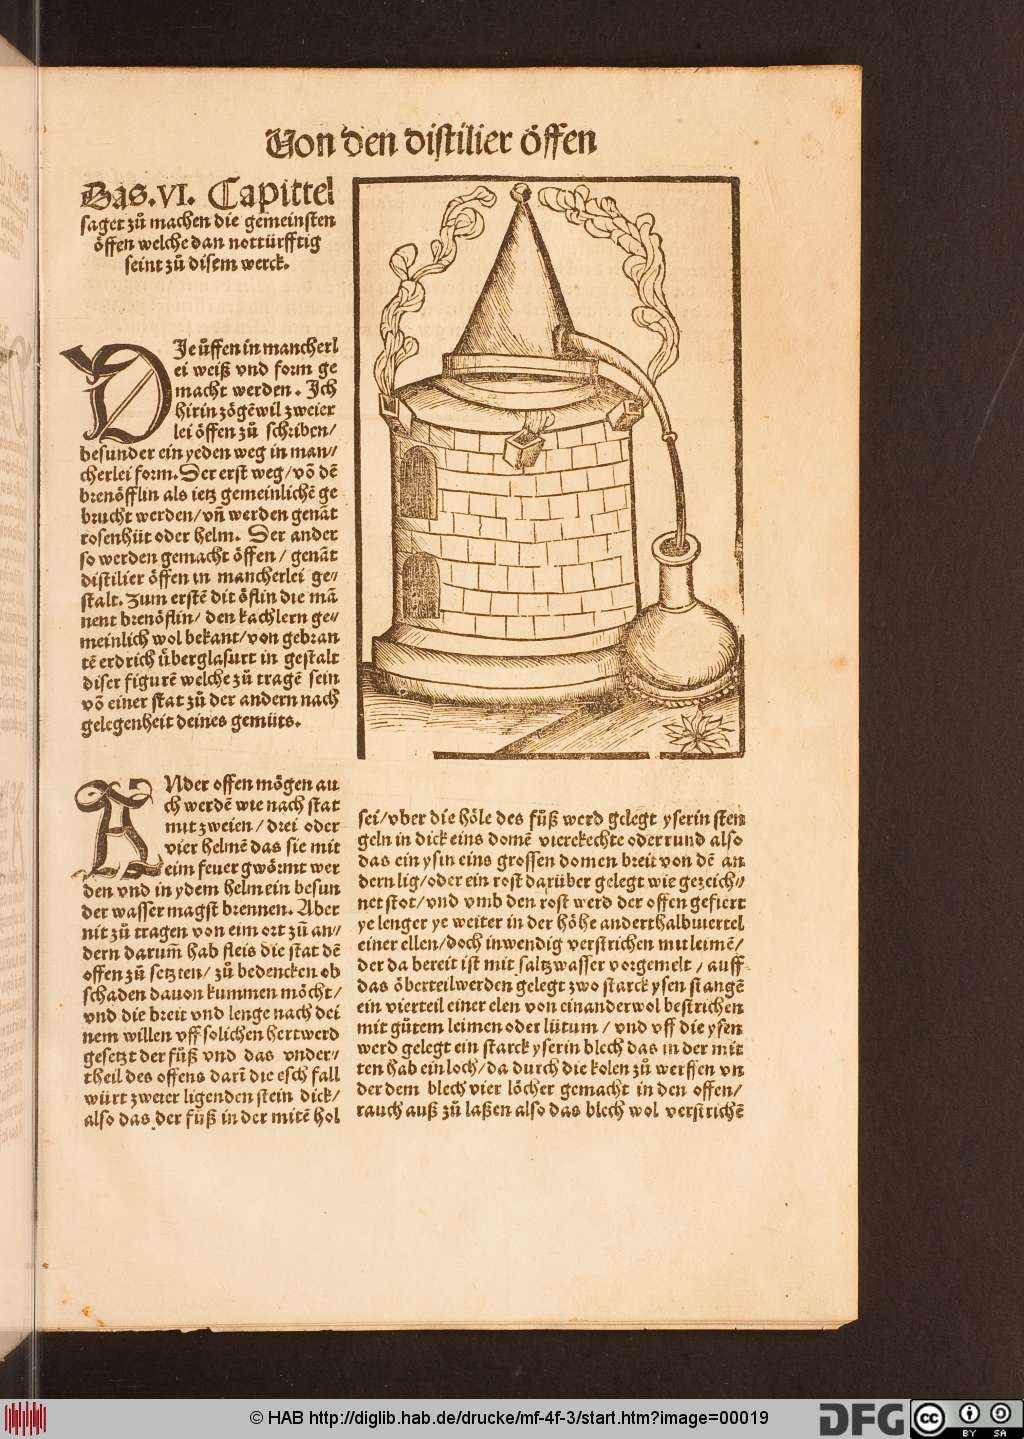 Von den distilier öffen
Das .VI. Capittel
saget zů machen die gemeinsten
öffen welche dan nottürfftig
seint zů disem werck.
DIe ůffen in mancherl
ei weiß vnd form ge
macht werden. Ich
hirin zögē wil zweier
lei öffen zů schriben/
besunder ein yeden weg in man//
cherlei form. Der erst weg/vō dē
brenöfflin als ietz gemeinlichē ge
brucht werden/vñ werden genāt
rosenhüt oder helm. Der ander
so werden gemacht öffen/ genāt
distilier öffen in mancherlei ge//
stalt. Zum erstē dit öflin die mā
nent brenöflin/ den kachlern ge//
meinlich wol bekant/von gebran
tē erdrich ůberglasurt in gestalt
diser figurē welche zů tragē sein
vō einer stat zů der andern nach
gelegenheit deines gemüts.
ANder offen mögen au
ch werdē wie nach stat
mit zweien/drei oder
vier helmē das sie mit
eim feuer gwörmt wer
den vnd in ydem helm ein besun
der wasser magst brennen. Aber
nit zů tragen von eim ort zů an/
dern darum̄ hab fleis die stat dē
offen zů setzten/ zů bedencken ob
schaden dauon kummen möcht/
vnd die breit vnd lenge nach dei
nem willen vff solichen hert werd
gesetzt der fůß vnd das vnder//
theil des offens darī die esch fall
würt zweier ligenden stein dick/
also das der fůß in der mitē hol
sei/vber die höle des fůß werd gelegt yserin sten
geln in dick eins domē vierekechte oder rund also
das ein ysin eins grossen domen breit von dē an
dern lig/oder ein rost darüber gelegt wie gezeich//
net stot/vnd vmb den rost werd der offen gefiert
ye lenger ye weiter in der höhe anderthalb viertel
einer ellen/doch inwendig verstrichen mit leimē/
der da bereit ist mit saltzwasser vorgemelt/auff
das öberteil werden gelegt zwo starck ysen stangē
ein vierteil einer elen von einander wol bestrichen
mit gůtem leimen oder lütum/ vnd vff die ysen
werd gelegt ein starck yserin blech das in der mit
ten hab ein loch/da durch die kolen zů werffen vn
der dem blech vier löcher gemacht in den offen/
rauch auß zů laßen also das blech wol verstrichē
© HAB http://diglib.hab.de/drucke/mf-4f-3/start.htm?image=00019
DFG
cc
BY SA